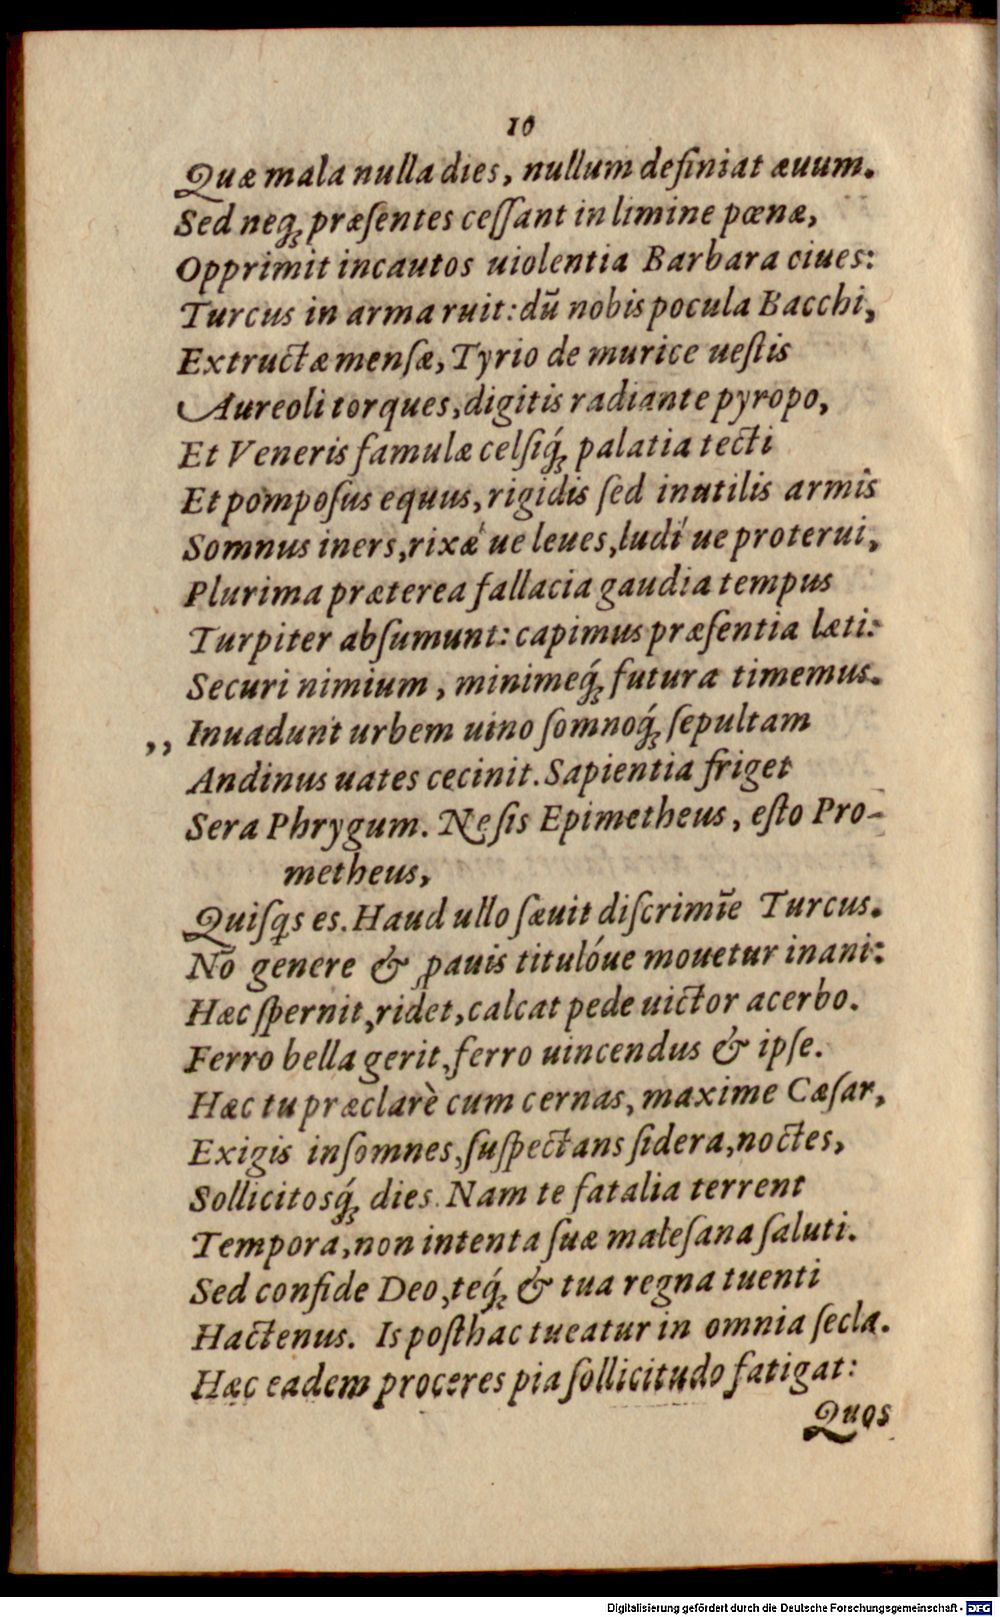 10
Quæ mala nulla dies, nullum definiat æuum.
Sed neq; præſentes ceſſant in limine pœnæ,
Opprimit incautos uiolentia Barbara ciues:
Turcus in arma ruit: dū nobis pocula Bacchi,
Extructæ menſæ, Tyrio de murice ueſtis
Aureoli torques, digitis radiante pyropo,
Et Veneris famulæ celſiq́; palatia tecti
Et pompoſus equus, rigidis ſed inutilis armis
Somnus iners, rixæ ue leues, ludi ue proterui,
Plurima præterea fallacia gaudia tempus
Turpiter abſumunt: capimus præſentia læti:
Securi nimium, minimeq́; futura timemus.
,, Inuadunt urbem uino ſomnoq́; ſepultam
Andinus uates cecinit. Sapientia friget
Sera Phrygum. Ne ſis Epimetheus, eſto Pro-
metheus,
Quiſꝗs es. Haud ullo ſæuit diſcrimīe Turcus.
Nō genere & ꝓauis titulóue mouetur inani:
Hæc ſpernit, ridet, calcat pede uictor acerbo.
Ferro bella gerit, ferro uincendus & ipſe.
Hæc tu præclarè cum cernas, maxime Cæſar,
Exigis inſomnes, ſuſpectans ſidera, noctes,
Sollicitosq́; dies. Nam te fatalia terrent
Tempora, non intenta ſuæ maleſana ſaluti.
Sed confide Deo, teq́; & tua regna tuenti
Hactenus. Is poſthac tueatur in omnia ſecla.
Hæc eadem proceres pia ſollicitudo fatigat:
Quos
Digitalisierung gefördert durch die Deutsche Forschungsgemeinschaft - DFG